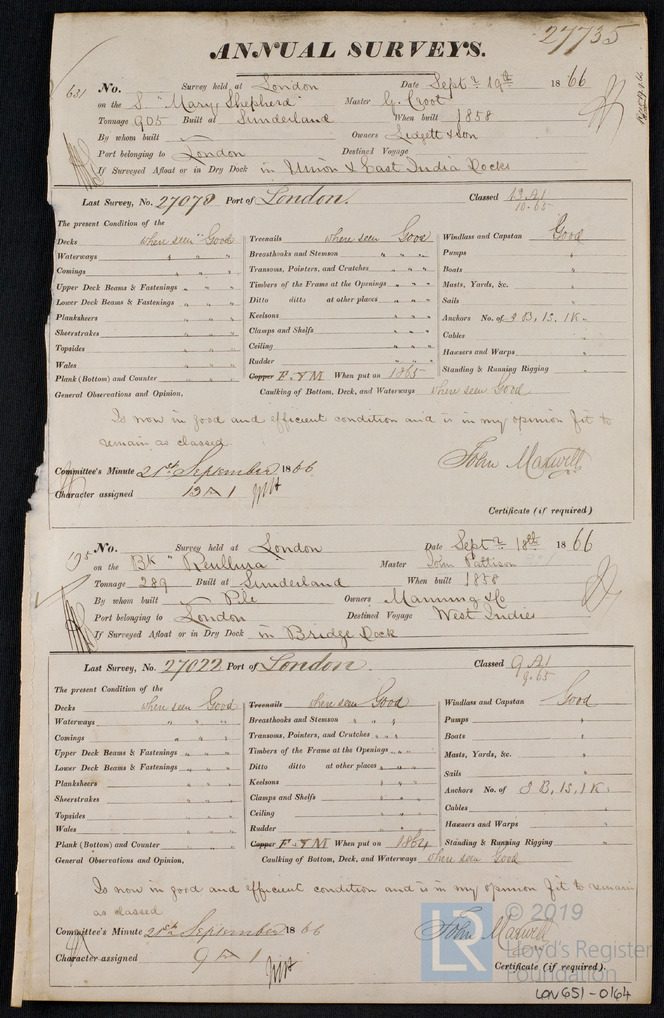 27735
ANNUAL SURVEYS.
631 No. Survey held at London Date Sept r 19th 1866
on the S. "Mary Shepherd" Master G. Croot
Tonnage 905 Built at Sunderland When built 1858
By whom built Owners Lidgett & Son
Port belonging to London Destined Voyage
If Surveyed Afloat or in Dry Dock in Union & East India Docks
Last Survey, No. 27078 Port of London. Classed 13 A1
10.65
The present Condition of the
Decks where seen Good Treenails where seen Good Windlass and Capstan Good
Waterways " " " Breasthooks and Stemson " " " Pumps "
Comings " " " Transoms, Pointers, and Crutches " " " Boats "
Upper Deck Beams & Fastenings " " " Timbers of the Frame at the Openings " " " Masts, Yards, &c. "
Lower Deck Beams & Fastenings " " " Ditto ditto at other places " " " Sails "
Planksheers " " " Keelsons " " " Anchors No. of 3 B, 1S, 1K.
Sheerstrakes " " " Clamps and Shelfs " " " Cables "
Topsides " " " Ceiling " " " Hawsers and Warps "
Wales " " " Rudder " " " Standing & Running Rigging "
Plank (Bottom) and Counter " " " Copper F. & M When put on 1865
General Observations and Opinion, Caulking of Bottom, Deck, and Waterways where seen Good
Is now in good and efficient condition and is in my opinion fit to
remain as classed.
John Maxwell
Committee's Minute 21st September 1866
Character assigned 13 A 1
Certificate (if required)
195 No. Survey held at London Date Sept r 18th 1866
on the Bk " Master John Pattison
Tonnage 289 Built at Sunderland When built 1858
By whom built Pile Owners Manning & Co
Port belonging to London Destined Voyage West Indies
If Surveyed Afloat or in Dry Dock in Bridge Dock
Last Survey, No. 27022 Port of London. Classed 9 A1
9.65
The present Condition of the
Decks where seen Good Treenails where seen Good Windlass and Capstan Good
Waterways " " " Breasthooks and Stemson " " " Pumps "
Comings " " " Transoms, Pointers, and Crutches " " " Boats "
Upper Deck Beams & Fastenings " " " Timbers of the Frame at the Openings " " " Masts, Yards, &c. "
Lower Deck Beams & Fastenings " " " Ditto ditto at other places " " " Sails "
Planksheers " " " Keelsons " " " Anchors No. of 3 B, 1S, 1K.
Sheerstrakes " " " Clamps and Shelfs " " " Cables "
Topsides " " " Ceiling " " " Hawsers and Warps "
Wales " " " Rudder " " " Standing & Running Rigging "
Plank (Bottom) and Counter " " " Copper F. & M When put on 1864
General Observations and Opinion, Caulking of Bottom, Deck, and Waterways where seen Good
Is now in good and efficient condition and is in my opinion fit to remain
as classed
John Maxwell
Committee's Minute 21st September 1866
Character assigned 9 A 1
Certificate (if required).
LR © 2019
Lloyd's Register
Foundation
LON651-0164